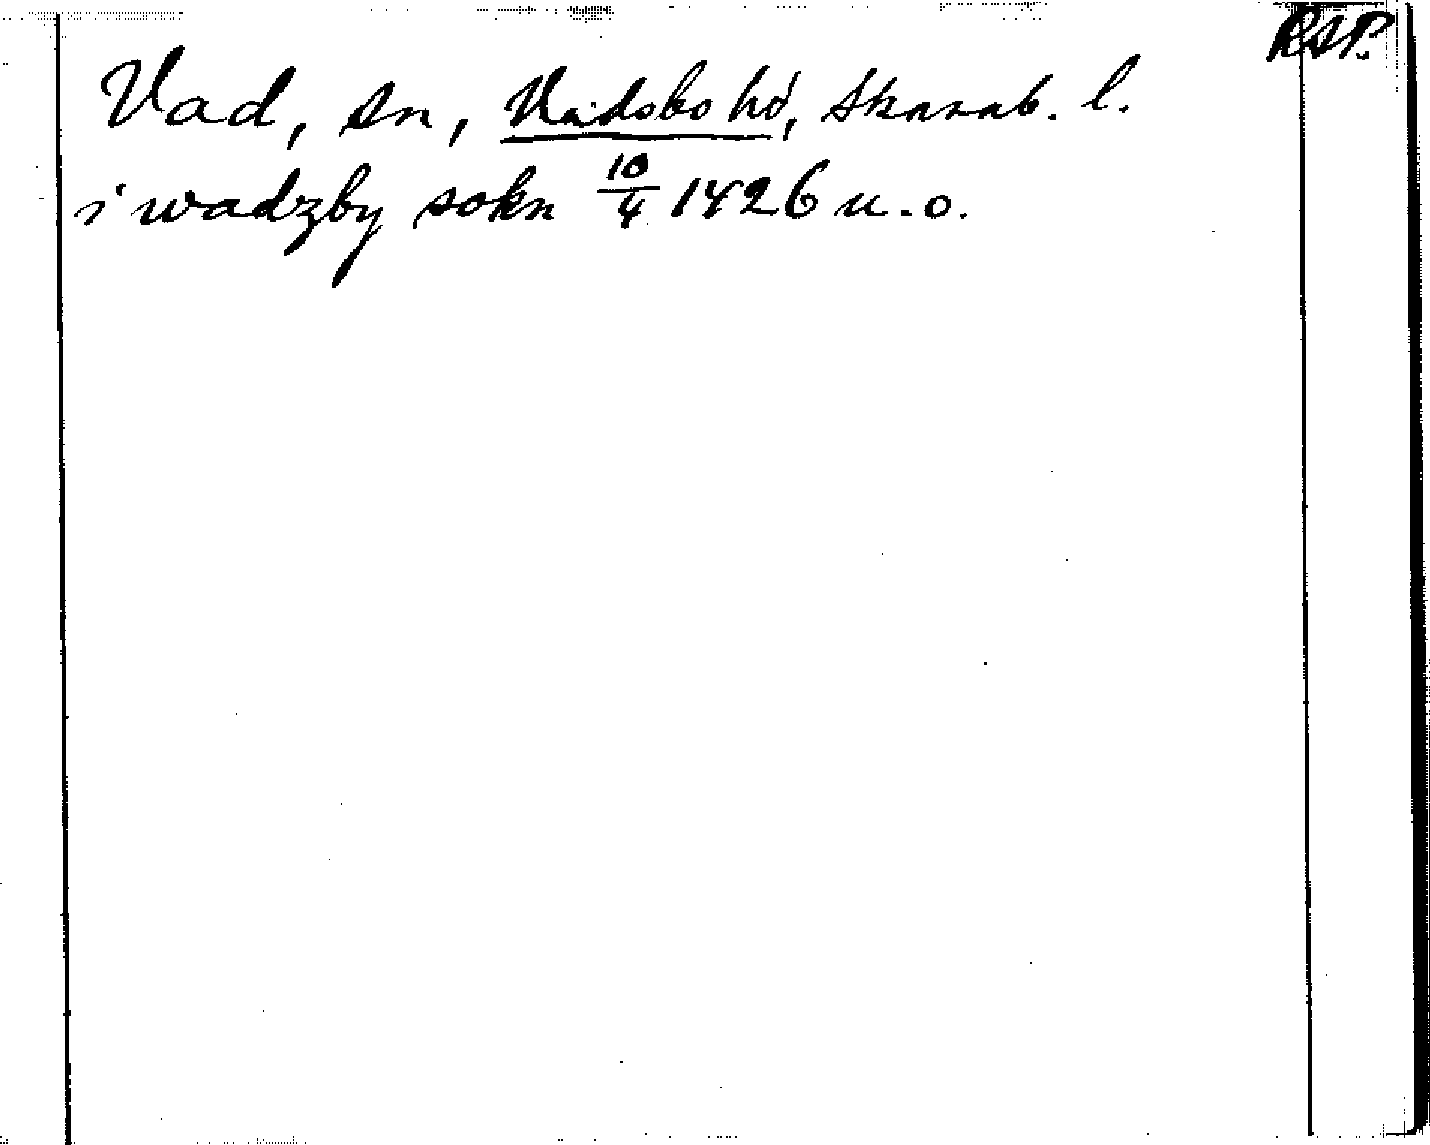 RAP.
Vad, sn, Vadsbo hd, Skarab. l.
i wadzby sokn 10/4 1426 u. o.